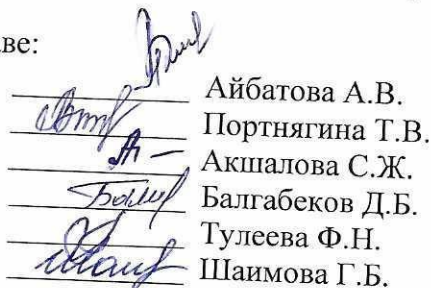 аве:
Айбатова А.В.
Портнягина Т.В.
Акшалова С.Ж.
Балгабеков Д.Б.
Тулеева Ф.Н.
Шаимова Г.Б.